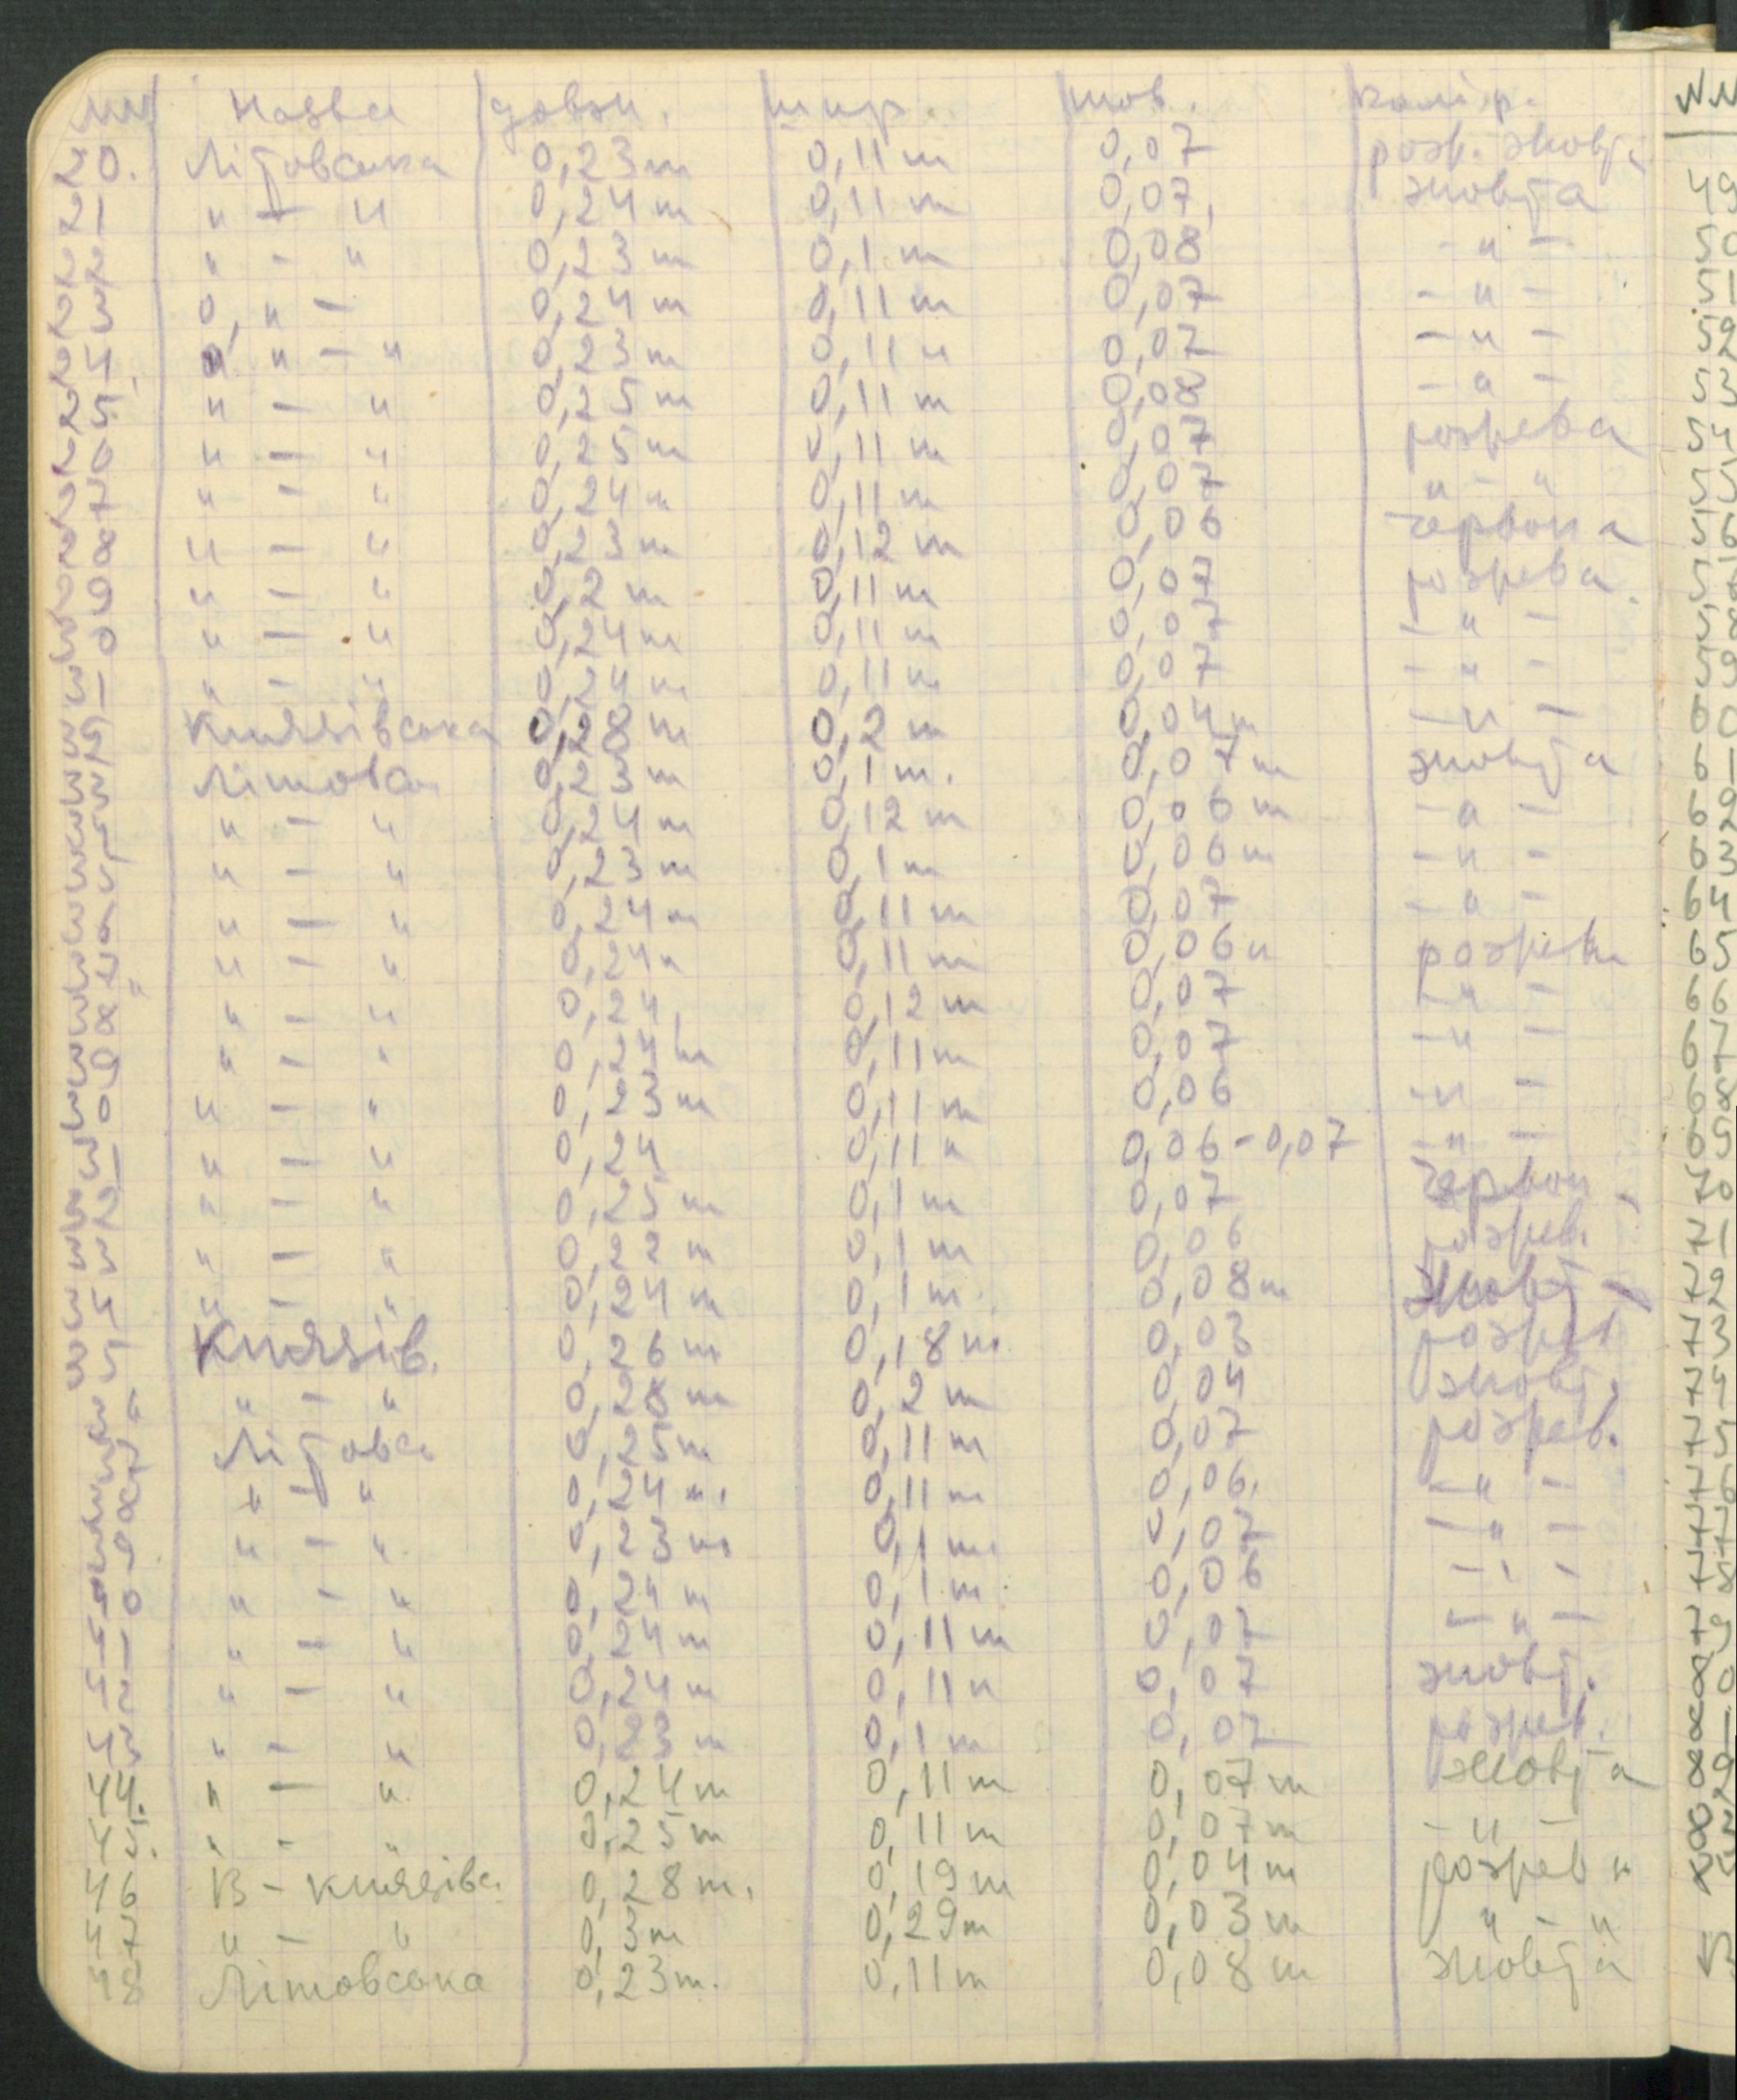 NN Назва довж. шир. тов. колір.
20. Літовська 0,23 м 0,11 м 0,07 рож. жовт.
21 " — " 0,24 м 0,11 м 0,07, жовта
22 " - " 0,23 м 0,1 м 0,08 - " -
23 0, " - 0,24 м 0,11 м 0,07 - " -
24. 0 " - " 0,23 м 0,11 м 0,07 - " -
25. " — " 0,25 м 0,11 м 0,08 - " -
26 " — " 0,25 м 0,11 м 0,07 рожева
27 " - " 0,24 м 0,11 м 0,07 " - "
28 " — " 0,23 м 0,12 м 0,06 червона
29 " — " 0,2 м 0,11 м 0,07 рожева.
30 " — " 0,24 м 0,11 м 0,07 - " -
31 " - " 0,24 м 0,11 м 0,07 - " -
32 Князівська 0,28 м 0,2 м 0,04 м - " -
33 Літова 0,23 м 0,1 м. 0,07 м жовта
34 " - " 0,24 м 0,12 м 0,06 м - " -
35 " - " 0,23 м 0,1 м 0,06 м - " -
36 " — " 0,24 м 0,11 м 0,07 - " -
37 " - " 0,24 м 0,11 м 0,06 м рожева
38 " - " 0,24, 0,12 м 0,07 - " -
39 " - " 0,24 м 0,11 м 0,07 - " -
30 " - " 0,23 м 0,11 м 0,06 - " -
31 " — " 0,24 0,11 м 0,06 - 0,07 - " -
32 " - " 0,25 м 0,1 м 0,07 червон.
33 " - " 0,22 м 0,1 м 0,06 рожев.
34 " - " 0,24 м 0,1 м. 0,08 м жовт
35 Князів. 0,26 м 0,18 м. 0,03 рожев
36 " - " 0,28 м 0,2 м 0,04 жовт.
37 Літовс 0,25 м 0,11 м 0,07 рожев.
38 " - " 0,24 м. 0,11 м 0,06. - " -
39 " - " 0,23 м 0,1 м. 0,07 - " -
40 " - " 0,24 м 0,1 м. 0,06 - " -
41 " - " 0,24 м 0,11 м 0,07 - " -
42 " - " 0,24 м 0,11 м 0,07 жовт.
43 " - " 0,23 м 0,1 м 0,07 рожев.
44. " - " 0,24 м 0,11 м 0,07 м жовта
45. " - " 0,25 м 0,11 м 0,07 м - " -
46 В - князівс. 0,28 м. 0,19 м 0,04 м рожева
47 " - " 0,3 м 0,29 м 0,03 м " - "
48 Літовська 0,23 м. 0,11 м 0,08 м жовта
49
50
51
52
53
54
55
56
57
58
59
60
61
62
63
64
65
66
67
68
69
70
71
72
73
74
75
76
77
78
79
80
81
82